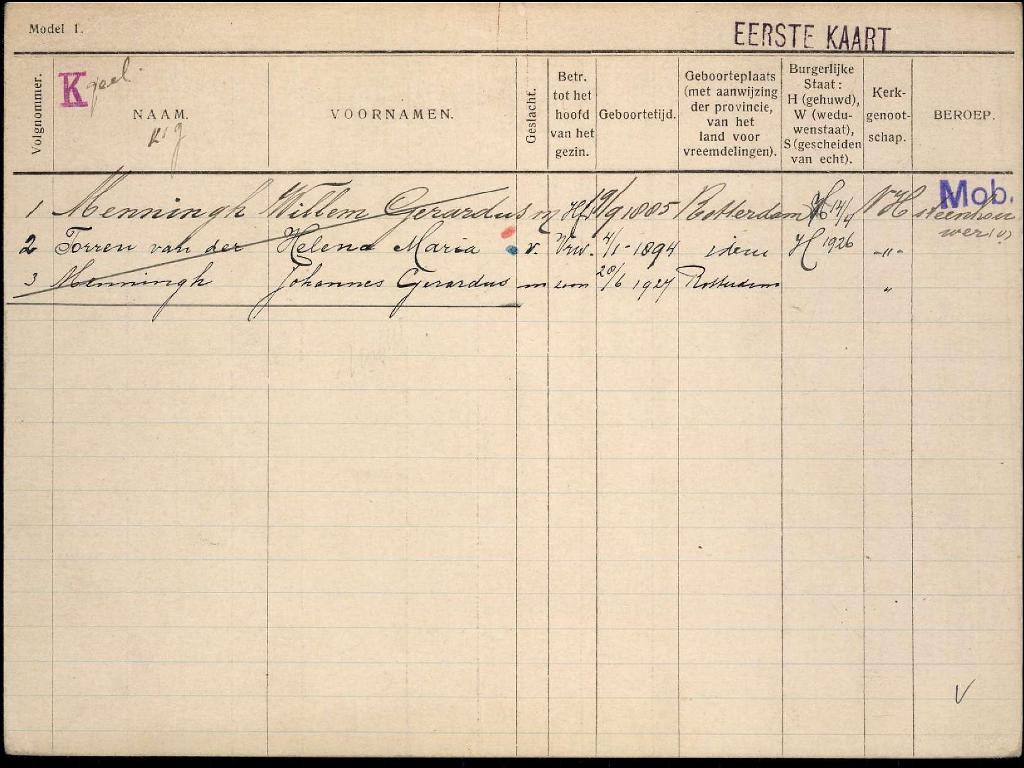 Model 1.
EERSTE KAART
Volgnommer.
K
NAAM.
VOORNAMEN.
Geslacht.
Betr.
tot het
hoofd
van het
gezin.
Geboortetijd.
Geboorteplaats
(met aanwijzing
der provincie,
van het
land voor
vreemdelingen).
Burgerlijke
Staat:
H (gehuwd),
W (wedu-
wenstaat),
S (gescheiden
van echt).
Kerk-
genoot-
schap.
BEROEP.
Mob.
1 Menningh Willem Gerardus m Hfd 19/9 1885 Rotterdam 14/4 NH steenhou
wer (v)
2 Torren van der Helena Maria v. Vrw. 4/1-1894 idem H 1926 -"-
3 Menningh Johannes Gerardus m zoon 20/6 1927 Rotterdam "